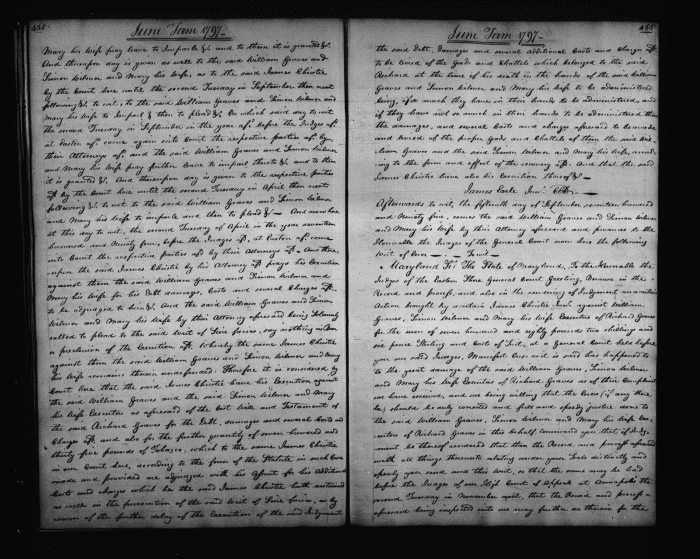 455
June Term 1797.
Mary his Wife pray leave to Imparle &c. and to them it is granted &c.
And thereupon day is given as well to the said William Graves and
Simon Wilmer and Mary his Wife, as to the said James Christie
by the Court here until the second Tuesday in September then next
following &c. to wit, to the said William Graves and Simon Wilmer and
Mary his Wife to Imparl & then to plead &c. On which said day to wit
the second Tuesday in September in the year afd. before the Judges afd.
at Easton afd. come again into Court the respective parties afd. by
their Attornies afd. and the said William Graves and Simon Wilmer
and Mary his Wife pray further leave to imparl thereto &c. and to them
it is granted &c. And thereupon day is given to the respective parties
afd. by the Court here until the second Tuesday in April then next
following &c. to wit to the said William Graves and Simon Wilmer
and Mary his Wife to imparle and then to plead &c. And now here
at this day to wit, the second Tuesday of April in the year seventeen
hundred and Ninety four, before the Judges afd. at Easton afd. come
into Court the respective parties afd. by their Attornies afd. And there
upon the said James Christie by his Attorney afd. prays his Execution
against them the said William Graves and Simon Wilmer and
Mary his Wife for his Debt damages, Costs and several Charges afd.
to be adjudged to him &c. And the said William Graves and Simon
Wilmer and Mary his Wife by their Attorney aforesaid being solemnly
called to plead to the said Writ of Fieri facias, say nothing in Bar or
preclusion of the Execution afd. Whereby the same James Christie
against them the said William Graves and Simon Wilmer and Mary
his Wife remains therein undefended: Therefore it is considered by
Court here that the said James Christie have his Execution against
the said William Graves and the said Simon Wilmer and Mary
his Wife Executors as aforesaid of the last Will and Testament of
the said Richard Graves for the Debt, damages and several Costs and
Charges afd. and also for the further quantity of seven hundred and
thirty five pounds of Tobacco, which to the same James Christie
in our Court here, according to the form of the Statute in such Case
made and provided are adjudged with his Assent for his Additional
Costs and charges which he the said James Christie hath sustained
as well in the prosecution of the said Writ of Fieri facias, as by
reason of the further delay of the Execution of the said Judgment
June Term 1797.
the said Debt, Damages and several additional Costs and Charges afd.
to be levied of the Goods and Chattels which belonged to the said
Richard at the time of his death in the hands of the said William
Graves and Simon Wilmer and Mary his Wife to be administered
being, if so much they have in their hands to be administered, and
if they have not so much in their hands to be administered then
the damages, and several Costs and charges aforesaid to be made
and levied of the proper Goods and Chattels of them the said Wil-
liam Graves and the said Simon Wilmer and Mary his Wife, accord-
ing to the form and effect of the recovery afd. And that the said
James Christie have also his Execution thereof &c.
James Earle Junr. Clk.
Afterwards to wit, the fifteenth day of September seventeen hundred
and Ninety five, comes the said William Graves and Simon Wilmer
and Mary his Wife by their Attorney aforesaid and produces to the
Honorable the Judges of the General Court now here the following
Writ of Error
Maryland Sc. The State of Maryland, To the Honorable the
Judges of the Eastern Shore General Court Greeting, Because in the
Record and process, and also in the rendering of Judgment on a certain
Action brought by a certain James Christie Junr. against William
Graves, Simon Wilmer and Mary his Wife Executors of Richard Graves
for the sum of seven hundred and eighty pounds two shillings and
six pence Sterling and Costs of Suit, at a General Court held before
you our said Judges, Manifest Error as it is said has happened to
to the great damage of the said William Graves, Simon Wilmer
and Mary his Wife Executors of Richard Graves as of their Complaint
we have received, and we being willing that the Error (if any there
be) should be duly corrected and full and speedy justice done to
the said William Graves, Simon Wilmer and Mary his Wife Exe-
cutors of Richard Graves in this behalf command you that if Judg-
ment be thereof rendered that then the Record and process aforesaid
with all things thereunto relating under your Seals distinctly and
openly you send and this Writ, so that the same may be had
before the Judges of our High Court of Appeals at Annapolis the
second Tuesday in November next, that the Record and process
aforesaid being inspected into we may further do therein for the